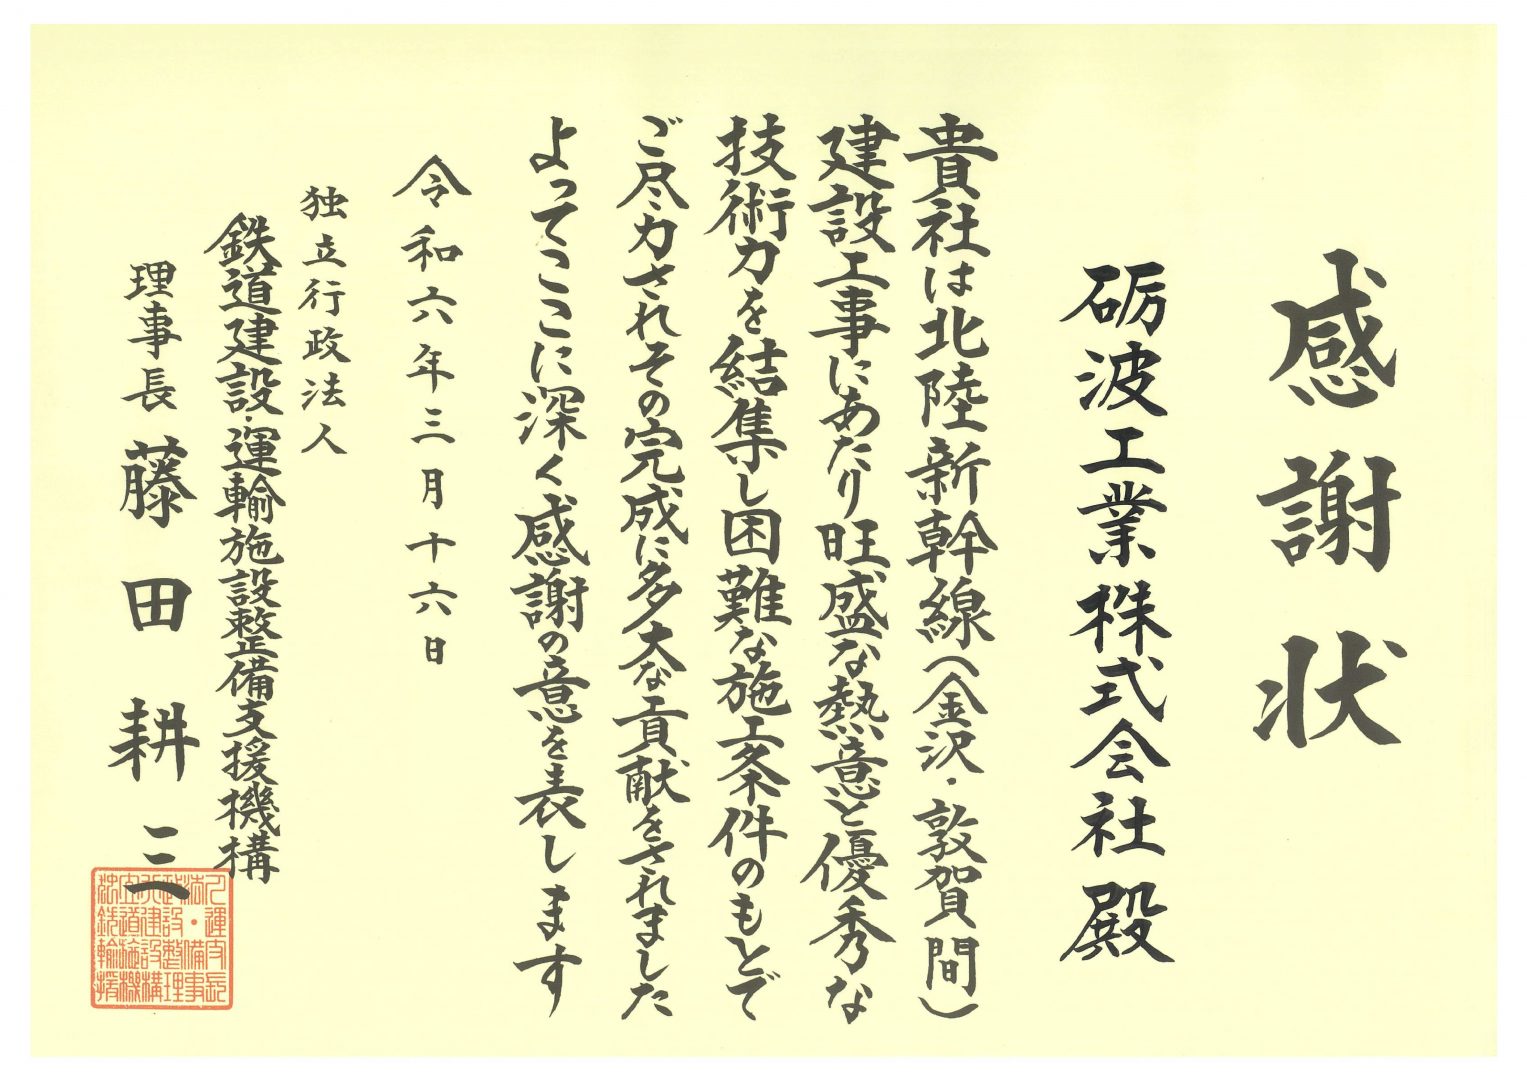 感謝状
砺波工業株式会社殿
貴社は北陸新幹線(金沢・敦賀間)
建設工事にあたり旺盛な熱意と優秀な
技術力を結集し困難な施工条件のもとで
ご尽力されその完成に多大な貢献をされました
よってここに深く感謝の意を表します
令和六年三月十六日
独立行政法人
鉄道建設・運輸施設整備支援機構
理事長 藤田耕三